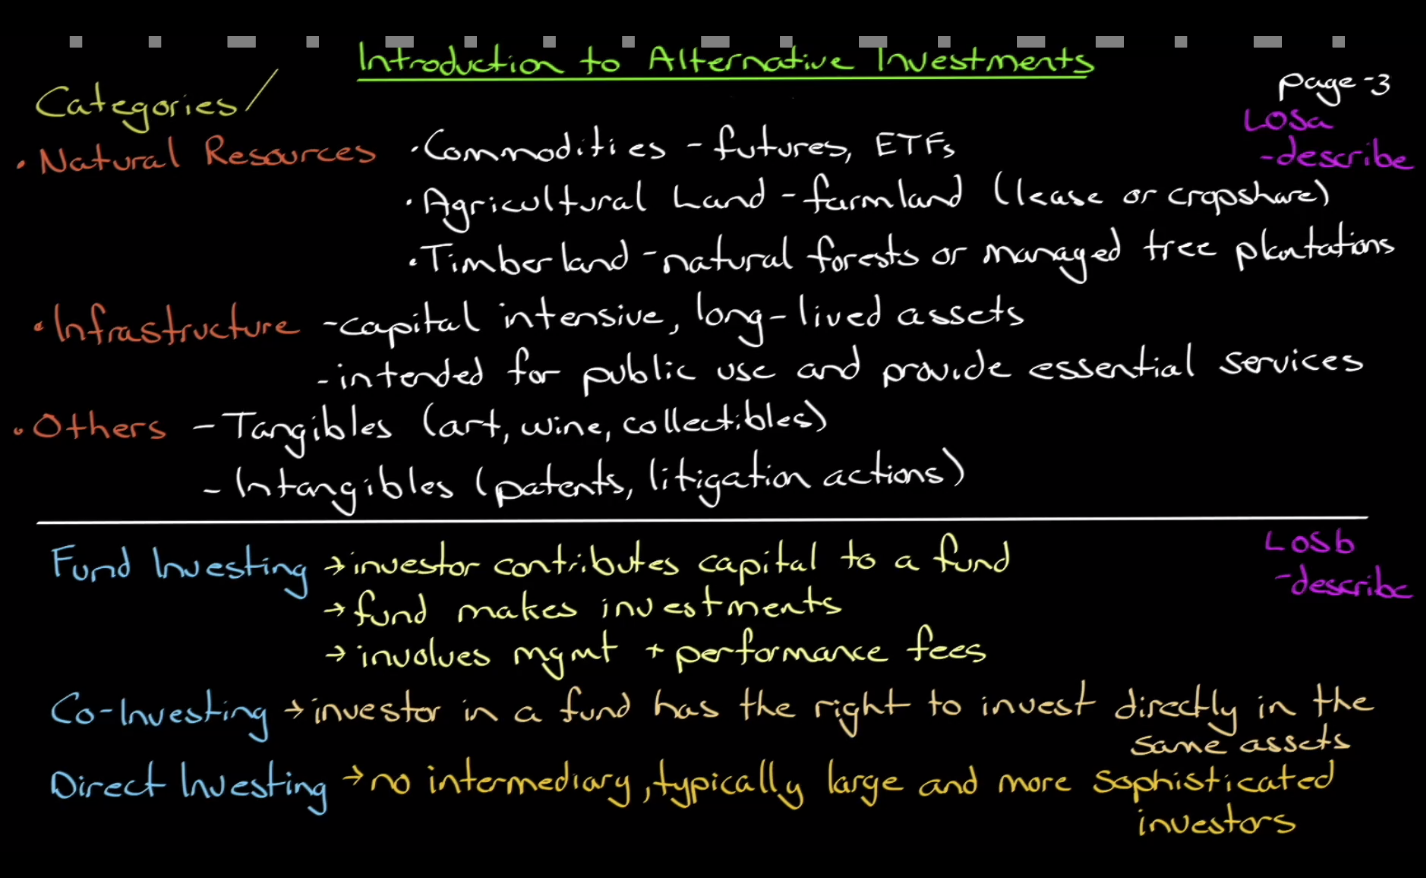 Introduction to Alternative Investments
page-3
Categories/
LOSa
-describe
• Natural Resources • Commodities - futures, ETFs
• Agricultural Land - farmland (lease or cropshare)
• Timberland - natural forests or managed tree plantations
• Infrastructure - capital intensive, long-lived assets
- intended for public use and provide essential services
• Others - Tangibles (art, wine, collectibles)
- Intangibles (patents, litigation actions)
LOSb
-describe
Fund Investing → investor contributes capital to a fund
→ fund makes investments
→ involves mgmt + performance fees
Co-Investing → investor in a fund has the right to invest directly in the
same assets
Direct Investing → no intermediary, typically large and more sophisticated
investors